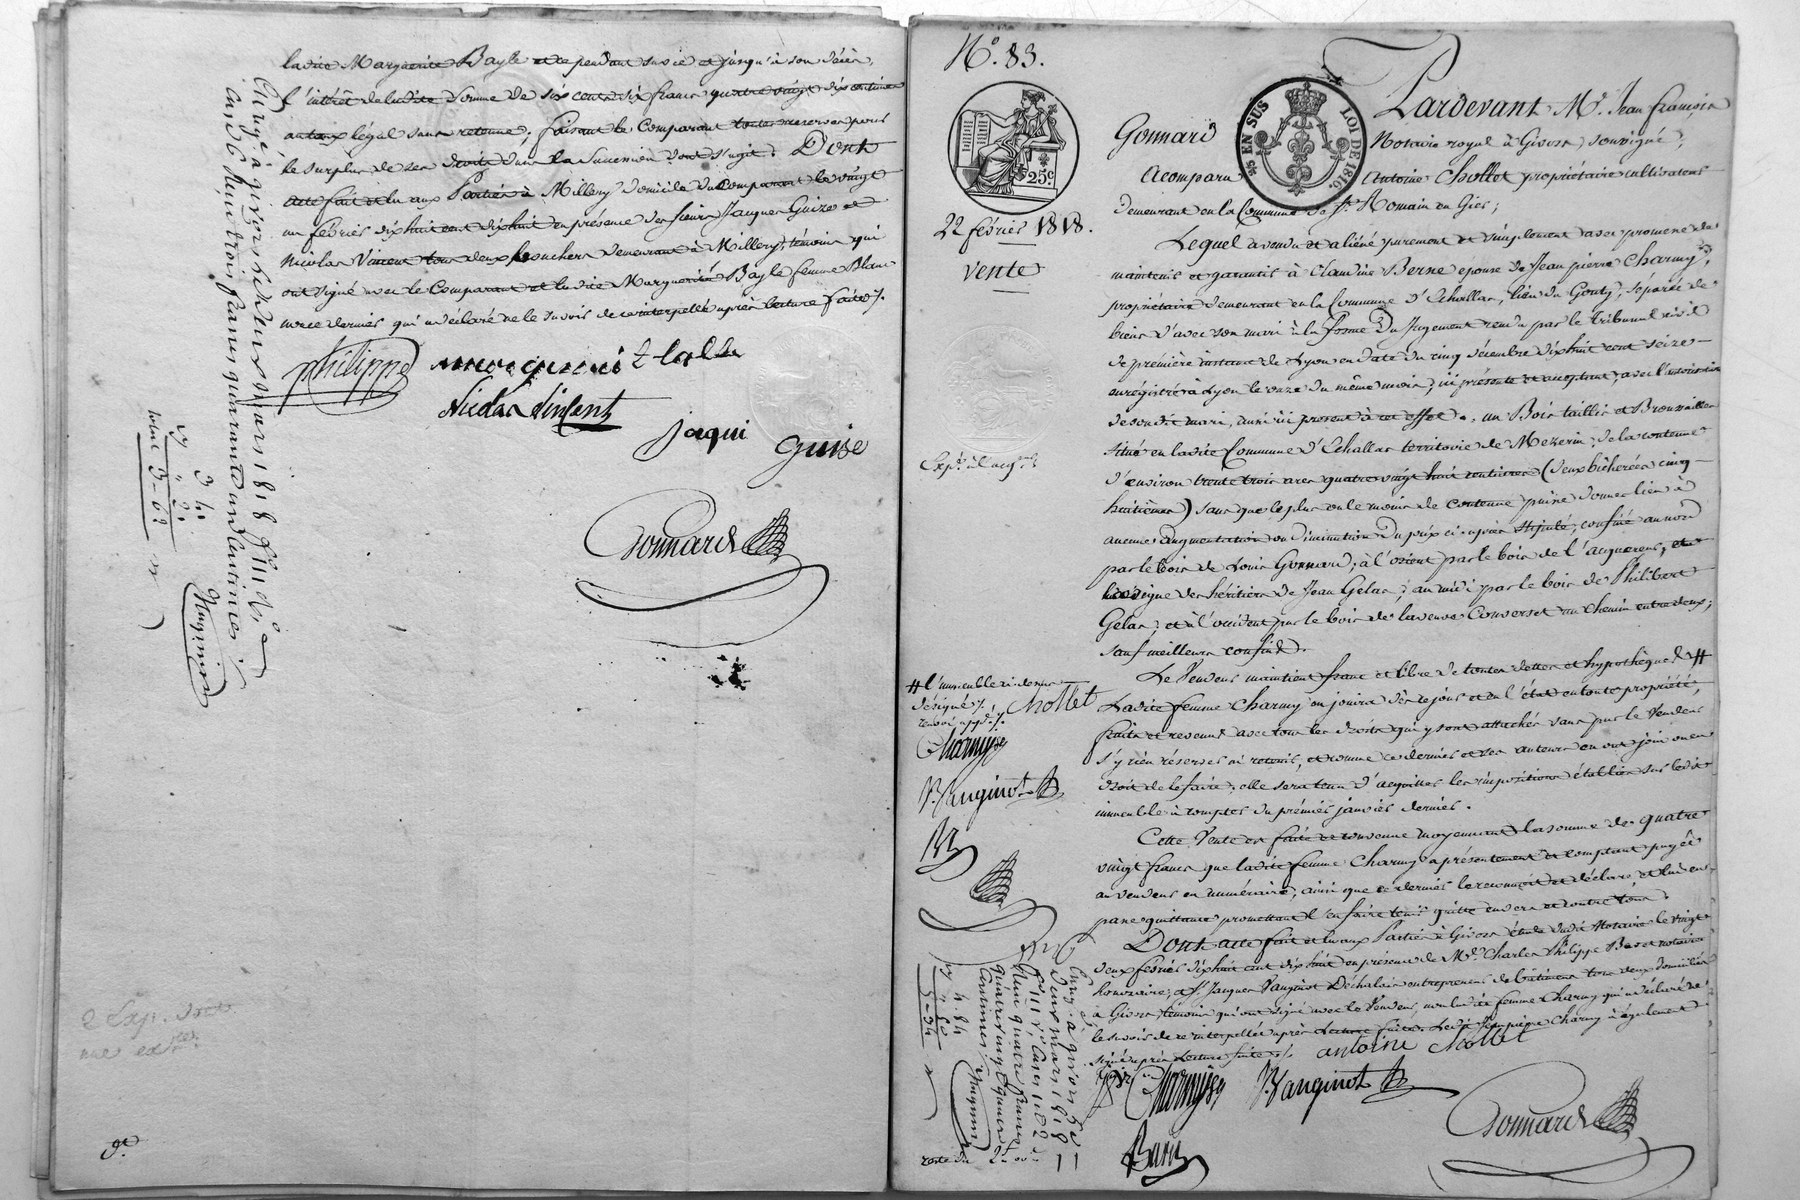 ladite Marguerite Bayle et ce pendant sa vie et jusqu'à son décès,
l'intérêt de ladite somme de six cents six francs quatre vingt dix centimes
au taux légal sans retenue; faisant le Comparant toutes reserves pour
le surplus de ses droits dans la Succession dont s'agit. Dont
acte fait et lu aux Parties à Millery domicile du Comparant le vingt
un février dix huit cent dix huit en présence des sieurs Jacques Guize et
Nicolas Vincent tous deux bouchers demeurant à Millery, témoins qui
ont signé avec le Comparant et ladite Marguerite Bayle femme Blanc
qui a déclaré ne le savoir de ce interpellé après lecture faite.
philippe
Nicolas Vinsent
jaqui guise
Gonnard
Enreg.é à givors le deux mars 1818
trois francs quarante centimes
Nugnin
2 Exp.
N.o 83.
25c.
EN SUS LOI DE 1816.
22 février 1818.
vente
Pardevant M.e Jean françois
Gonnard Notaire royal à Givors soussigné,
A comparu Antoine Chollet propriétaire cultivateur
demeurant en la Commune de St. Romain en Gier;
Lequel a vendu et aliéné purement et simplement avec promesse de
maintenir et garantir à Claudine Berne epouse de Jean pierre Charmy,
propriétaire demeurant en la Commune d'Echallas, lieu du Gouty, séparée de
biens d'avec son mari à la forme du Jugement rendu par le tribunal civil
de première instance de Lyon en date du cinq décembre dix huit cent seize
enregistré à Lyon le onze du même mois, ici présente et acceptant, avec l'autorisation
de son dit mari, aussi ici présent à cet effet, un Bois taillis et Broussailles
situé en ladite Commune d'Echallas territoire de Mezerin, de la contenue
d'environ trente trois ares quatre vingt huit centiares (deux bicherées cinq
huitièmes) sans que le plus ou le moins de contenue puisse donner lieu à
aucune augmentation ou diminution du prix ci-après stipulé, confiné au nord
par le bois de Louis Gonnard; à l'orient par le bois de l'acquereur,
vigne des héritiers de Jean Gelas; au midi par le bois de Philibert
Gelas; et à l'occident par le bois de la veuve Converset un chemin entre deux;
sauf meilleurs confins.
Le Vendeur maintient franc et libre de toutes dettes et hypothèques #
Ladite femme Charmy en jouira dès ce jour et en l'état en toute propriété,
fruits et revenus avec tous les droits qui y sont attachés sans par le Vendeur
s'y rien réserver ni retenir, et comme ce dernier et ses auteurs en ont joui ou eu
droit de le faire; elle sera tenue d'acquitter les impositions établies sur ledit
immeuble à compter du premier janvier dernier.
Cette Vente est faite et convenue moyennant la somme de quatre
vingt francs que ladite femme Charmy a présentement et comptant payée
au vendeur en numéraire; ainsi que ce dernier le reconnait et déclare et lui en
passe quittance promettant l'en faire tenir quitte envers et contre tous.
Dont acte fait et lu aux Parties à Givors étude dudit Notaire le vingt
deux février dix huit cent dix huit en présence de M.r Charles Philippe notaire
honoraire, et Sr. Jacques Vanginot Déchalain entrepreneur de bâtimens tous deux domiciliés
à Givors, témoins qui ont signé avec le Vendeur, non ladite femme Charmy qui a déclaré ne
le savoir de ce interpellée après Lecture faite. Ledit Jean pierre Charmy a également
signé après Lecture faite. antoine Chollet
Charmy Vanginot
Gonnard
# l'immeuble ci-dessus
désigné.
renvoi app.é
Chollet
Charmy
Vanginot
Enreg.é à givors le
deux mars 1818
quatre francs
quatre vingt quatre
centimes
Nugnin